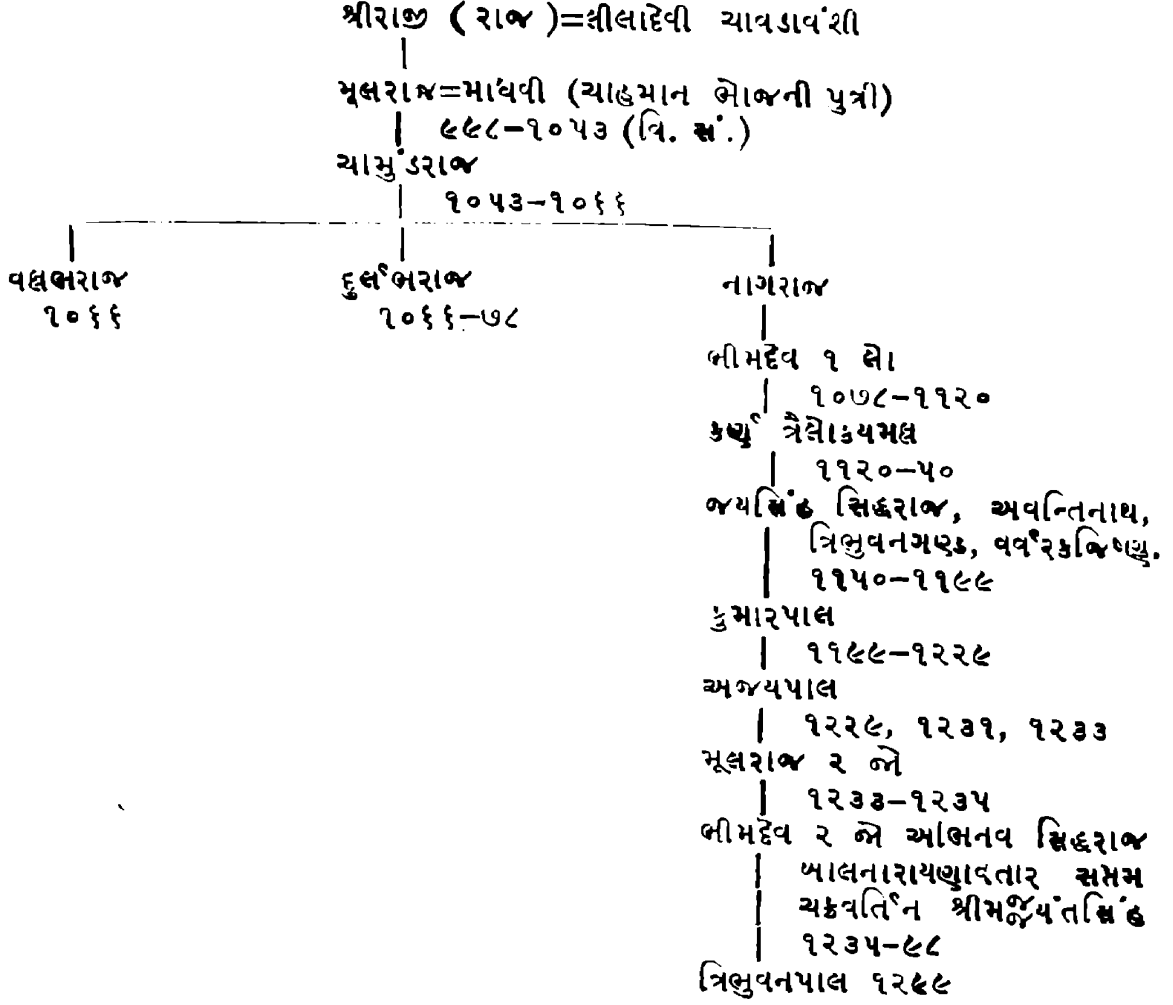 શ્રીરાજી ( રાજ )=લીલાદેવી ચાવડાવંશી
મૂલરાજ=માધવી (ચાહમાન ભોજની પુત્રી)
૯૯૮–૧૦૫૩ (વિ. સં.)
ચામુંડરાજ
૧૦૫૩–૧૦૬૬
વલ્લભરાજ દુર્લભરાજ નાગરાજ
૧૦૬૬ ૧૦૬૬–૭૮
ભીમદેવ ૧ લો
૧૦૭૮–૧૧૨૦
કર્ણ ત્રૈલોક્યમલ્લ
૧૧૨૦–૫૦
જયસિંહ સિદ્ધરાજ, અવન્તિનાથ,
ત્રિભુવનગણ્ડ, વર્વરકજિષ્ણુ.
૧૧૫૦–૧૧૯૯
કુમારપાલ
૧૧૯૯–૧૨૨૯
અજયપાલ
૧૨૨૯, ૧૨૩૧, ૧૨૩૩
મૂલરાજ ૨ જો
૧૨૩૩–૧૨૩૫
ભીમદેવ ૨ જો અભિનવ સિદ્ધરાજ
બાલનારાયણાવતાર સપ્તમ
ચક્રવર્તિન શ્રીમજ્જયંતસિંહ
૧૨૩૫–૯૮
ત્રિભુવનપાલ ૧૨૯૯